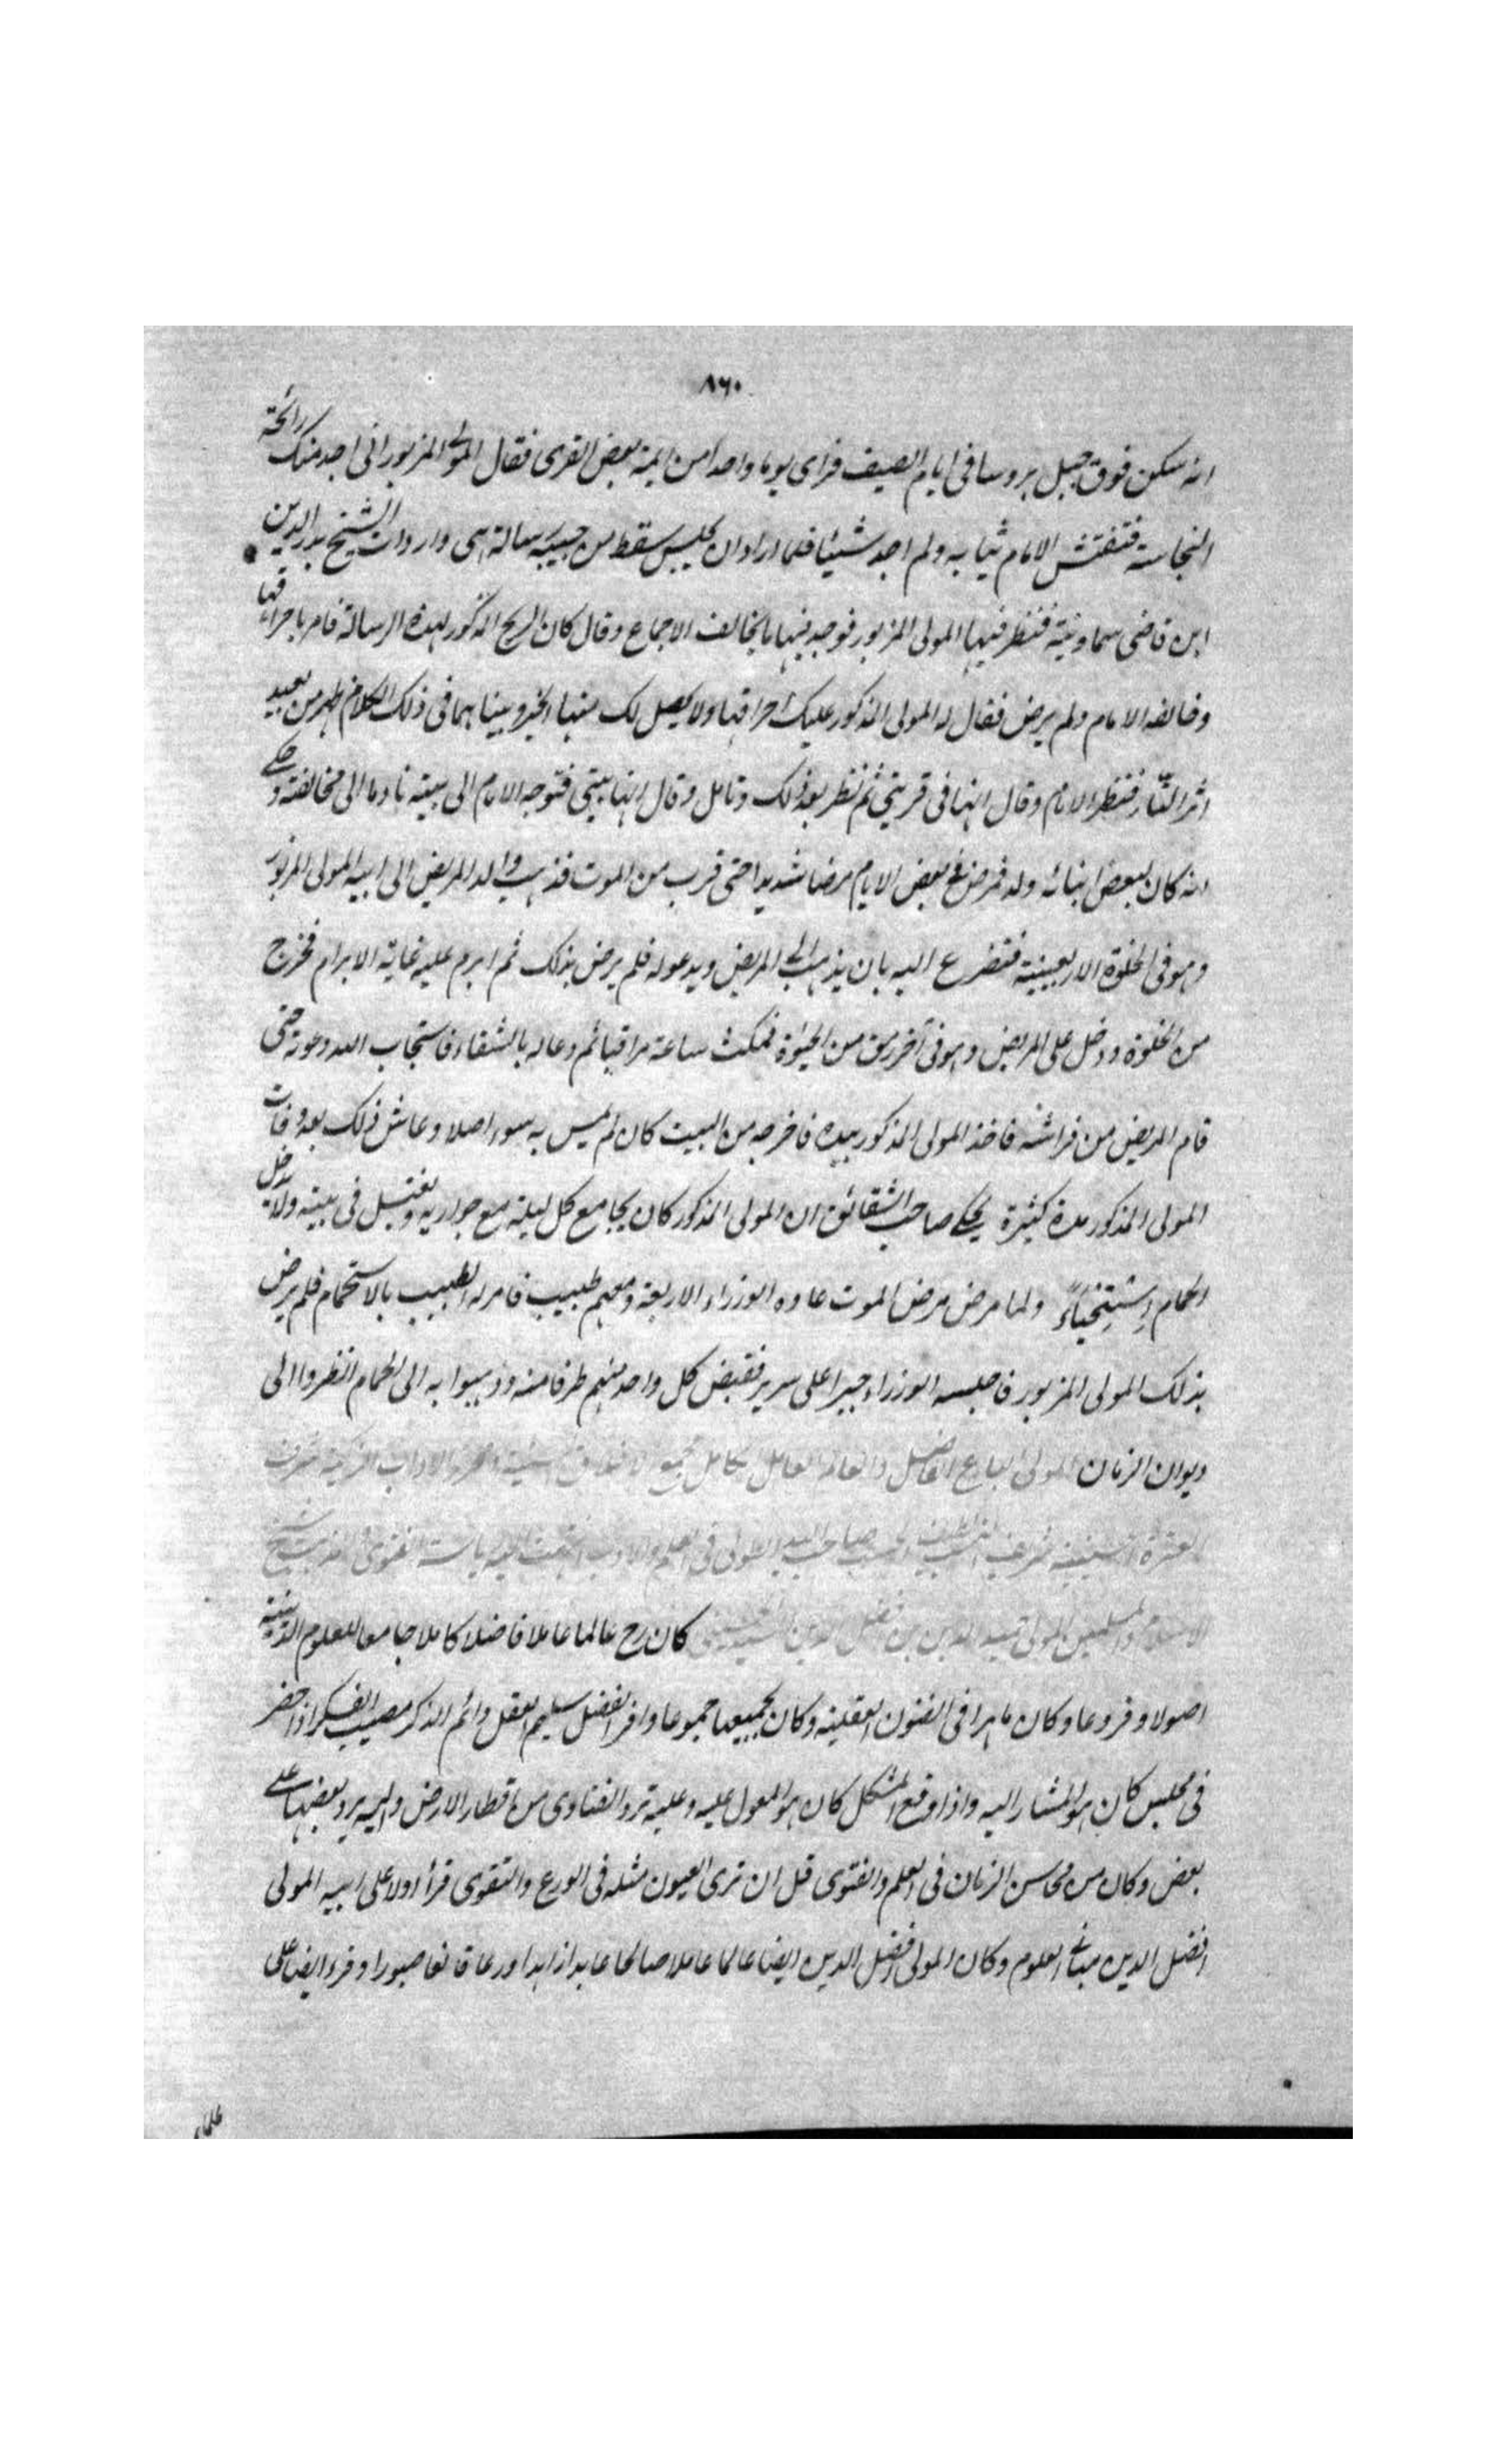 ٨٦٠
انه سكن فوق جبل بروسا فى ايام الصيف فراى يوما واحدا من ايمة بعض القرى فقال المولى المزبور انى اجد منك رائحة
النجاسة ففتش الامام ثيابه ولم اجد شيئا فلما اراد ان يجلس سقط من جيبه رسالة هى واردات الشيخ بدر الدين
ابن قاضى سماونية فنظر فيها المولى المزبور فوجد فيها ما يخالف الاجماع وقال كان الريح المذكور لهذه الرسالة فامر باحراقها
وخالفه الامام ولم يرض فقال له المولى المذكور عليك احراقها ولا يحصل لك منها الخير وبينا هما فى ذلك الكلام ظهر من بعيد
اثر النار فنظر الامام وقال انها فى قريتى ثم نظر بعد ذلك وتامل وقال انها بيتى فتوجه الامام الى بيته نادما الى مخالفته وحكى
انه كان لبعض ابنائه ولد فمرض فى بعض الايام مرضا شديدا حتى قرب من الموت فذهب والد المريض الى ابيه المولى المزبور
وهو فى الخلوة الاربعينية فتضرع اليه بان يذهب الى المريض ويدعو له فلم يرض بذلك ثم ابرم عليه غاية الابرام فخرج
من الخلوة ودخل على المريض وهو فى آخر رمق من الحيوة فمكث ساعة مراقبا ثم دعا له بالشفاء فاستجاب الله دعوته حتى
قام المريض من فراشه فاخذ المولى المذكور بيده فاخرجه من البيت كان لم يمس به سوء اصلا وعاش ذلك بعد وفات
المولى المذكور مدة كثيرة يحكى صاحب الشقائق ان المولى المذكور كان يجامع كل ليلة مع جواريه ويغتسل فى بيته ولا يدخل
الحمام استحياء ولما مرض مرض الموت عاده الوزراء الاربعة ومعهم طبيب فامر له الطبيب بالاستحمام فلم يرض
بذلك المولى المزبور فاجلسه الوزراء جبرا على سرير فقبض كل واحد منهم طرفا منه وذهبوا به الى الحمام انظروا الى
ديوان الزمان المولى البارع الفاضل والعالم العامل الكامل مجمع الاخلاق السنية ومحرز الاداب الزكية شرف
العترة الحسينية شريف النسب لطيف الحسب صاحب اليد الطولى فى العلم والادب انتهت اليه رياسة الفتوى شيخ
الاسلام والمسلمين المولى حميد الدين بن افضل الدين الحسينى كان رح عالما عاملا فاضلا كاملا جامعا للعلوم الدينية
اصولا وفروعا وكان ماهرا فى الفنون العقلية وكان لجميعها جموعا وافر الفضل سليم العقل دائم الذكر مصيب الفكر اذا حضر
فى مجلس كان هو المشار اليه واذا وقع المشكل كان هو المعول عليه وعليه ترد الفتاوى من اقطار الارض واليه يرد بعضها على
بعض وكان من محاسن الزمان فى العلم والفتوى قل ان ترى العيون مثله فى الورع والتقوى قرأ اولا على ابيه المولى
افضل الدين مبانى العلوم وكان المولى افضل الدين ايضا عالما عاملا صالحا عابدا زاهدا ورعا قانعا صبورا وقرء ايضا على
علماء